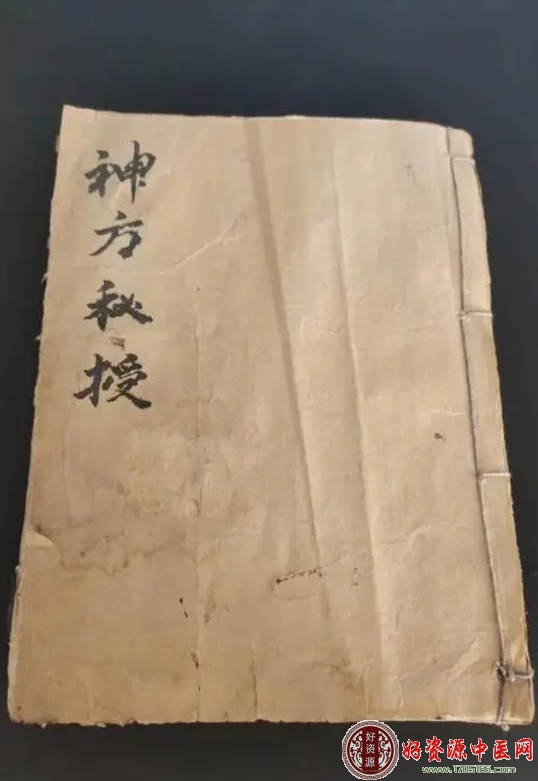 神方秘授
好资源
好资源中医网